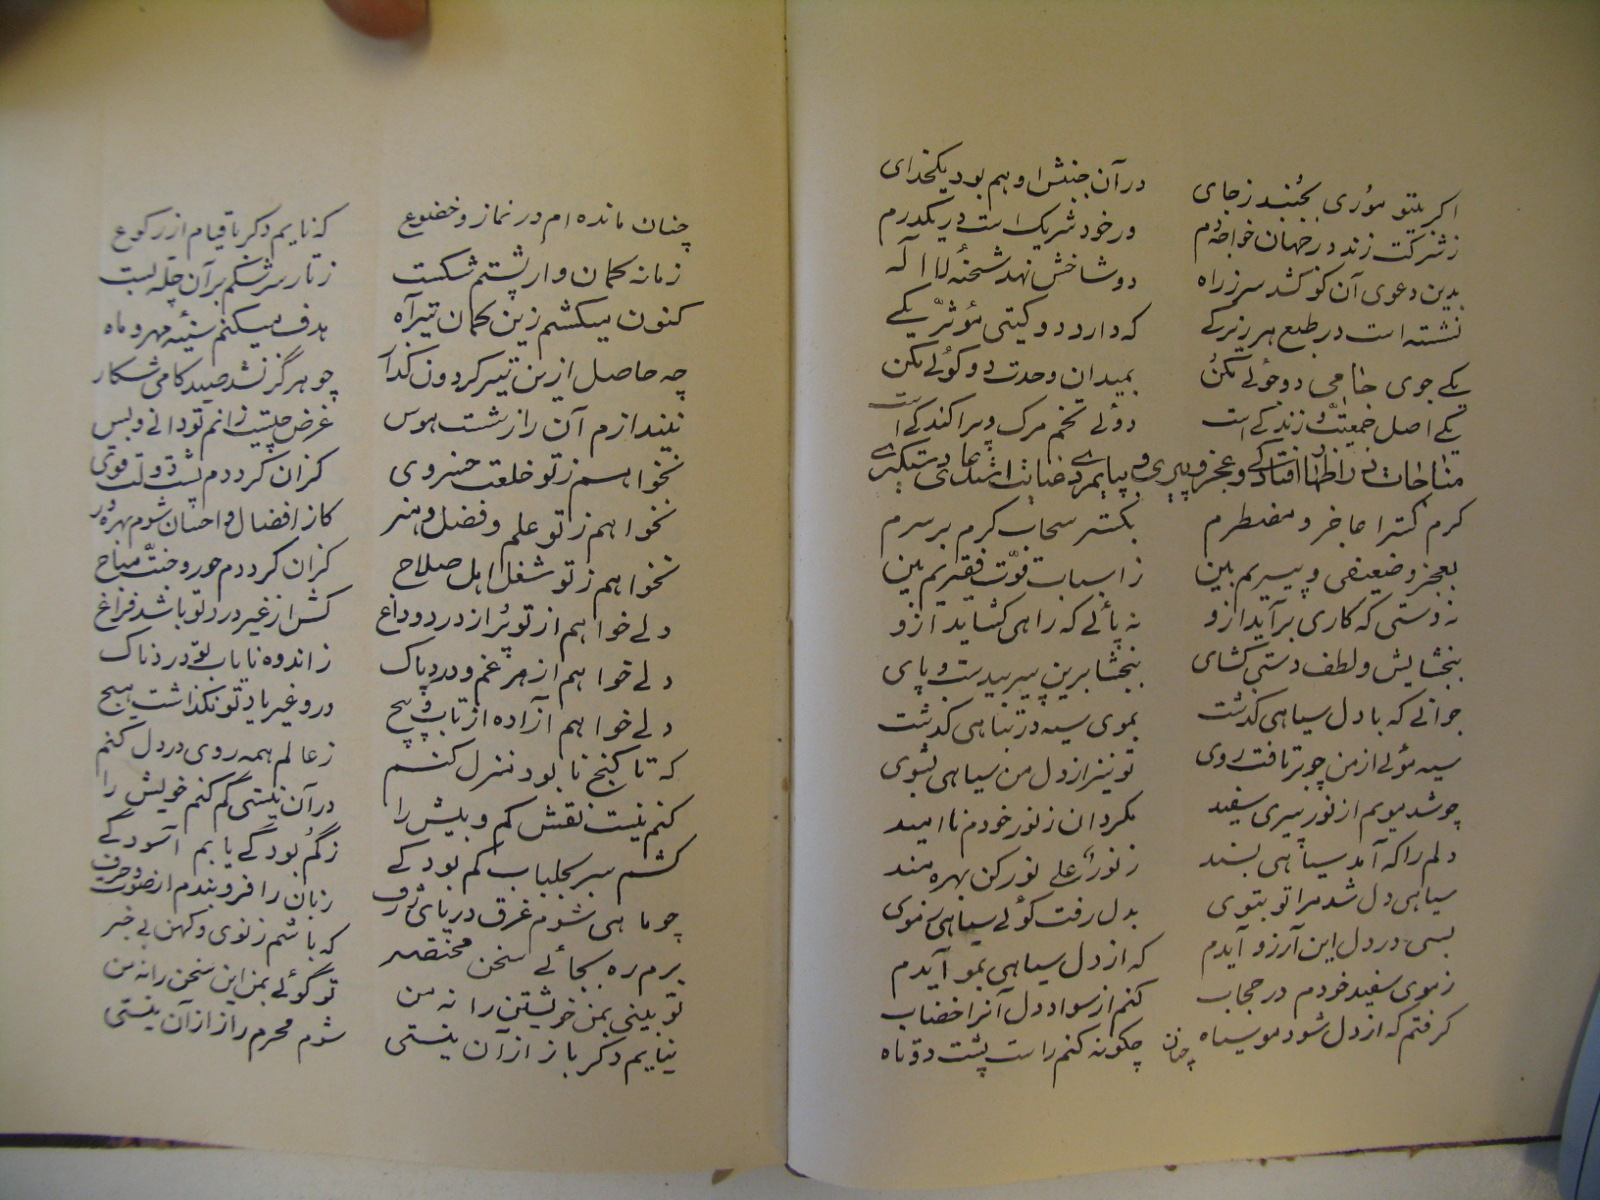 اکر بیتو موری بجنبد زجای در آن جنبش او هم بود یکخدای
ز شرکت زند در جهان خواجه دم ور خود شریک است در یکدرم
بدین دعوی آن کو کشد سر ز راه دو شاخش نهد شحنهٔ لا اله
نشسته است در طبع هر زیرکے که دارد دو کیتی مؤثر یکے
یکے جوی جامی دوجوئے مکن بمیدان وحدت دو کوئے مکن
یکے اصل جمعیت و زندکے است دوئے تخم مرک و پراکندکے است
مناجات در اظهار افتادکے و عجز و پیری و
کرم کسترا عاجز و مضطرم بکستر سحاب کرم بر سرم
بعجز و ضعیفی و پیریم بین ز اسباب قوت فقیریم بین
نه دستی که کاری برآید ازو نه پائے که راهی کشاید ازو
ببخشایش و لطف دستی کشای ببخشا برین پیر بیدست و پای
جوانے که با دل سیاهی کذشت بموی سیه در تباهی کذشت
سیه موئے از من چو برتافت روی تو نیز از دل من سیاهی بشوی
چو شد مویم از نور پیری سفید مکردان ز نور خودم ناامید
دلم را که آمد سیاهی پسند ز نور علی نور کن بهره مند
سیاهی دل شد مرا تو بتوی بدل رفت کوئے سیاهی ز موی
بسی در دل این آرزو آیدم که از دل سیاهی بمو آیدم
ز موی سفید خودم در حجاب کنم از سواد دل آنرا خضاب
کرفتم که از دل شود مو سیاه چکونه کنم راست پشت دوتاه
چنان
چنان مانده ام در نماز و خضوع که نایم دکر تا قیام از رکوع
زمانه کمان وار پشتم شکست ز تار سرشکم بر آن چله بست
کنون میکشم زین کمان تیر آه هدف میکنم سینهٔ مهر و ماه
چه حاصل ازین تیر کردون کذار چو هرکز نشد صید کامی شکار
نیندازم آن را ز شست هوس غرض چیست زانم تو دانے و بس
نخواهم ز تو خلعت خسروی کزان کرددم پشت دولت قوی
نخواهم ز تو علم و فضل و هنر کاز افضال و احسان شوم بهره ور
نخواهم ز تو شغل اهل صلاح کزان کرددم حور و جنت مباح
دلے خواهم از تو پر از درد و داغ کش از غیر درد تو باشد فراغ
دلے خواهم از هر غم و درد پاک ز اندوه نایاب تو دردناک
دلے خواهم آزاده از تاب و پیچ درو غیر یاد تو نکذاشت هیچ
که تا کنج نابود منزل کنم ز عالم همه روی در دل کنم
کنم نیست نقش کم و بیش را در آن نیستی کم کنم خویش را
کشم سر بجلباب کم بودکے ز کم بودکے یابم آسودکے
چو ماهی شوم غرق دریای ژرف زبان را فرو بندم از صوت و حرف
برم ره بجائے سخن مختصر که باشم ز نوی و کهن بے خبر
تو بینی بمن خویشتن را نه من تو کوئے بمن این سخن را نه من
نیایم دکر باز از آن نیستی شوم محرم راز از آن نیستی